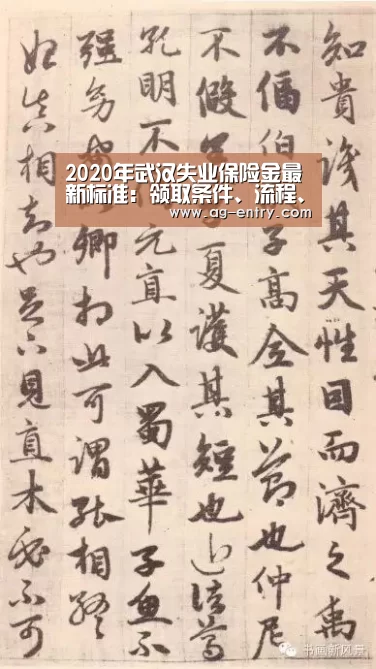 2020年武汉失业保险金最
新标准：领取条件、流程、
www.ag-entry.com
知貴識其天性因而濟之禹
不偪伯子高全其節也仲尼
不假夏護其短也近諸葛
孔明不元直以入蜀華子魚不
强幼卿相此可謂能相終
始真相知也足下見直木必不可
书画新风景